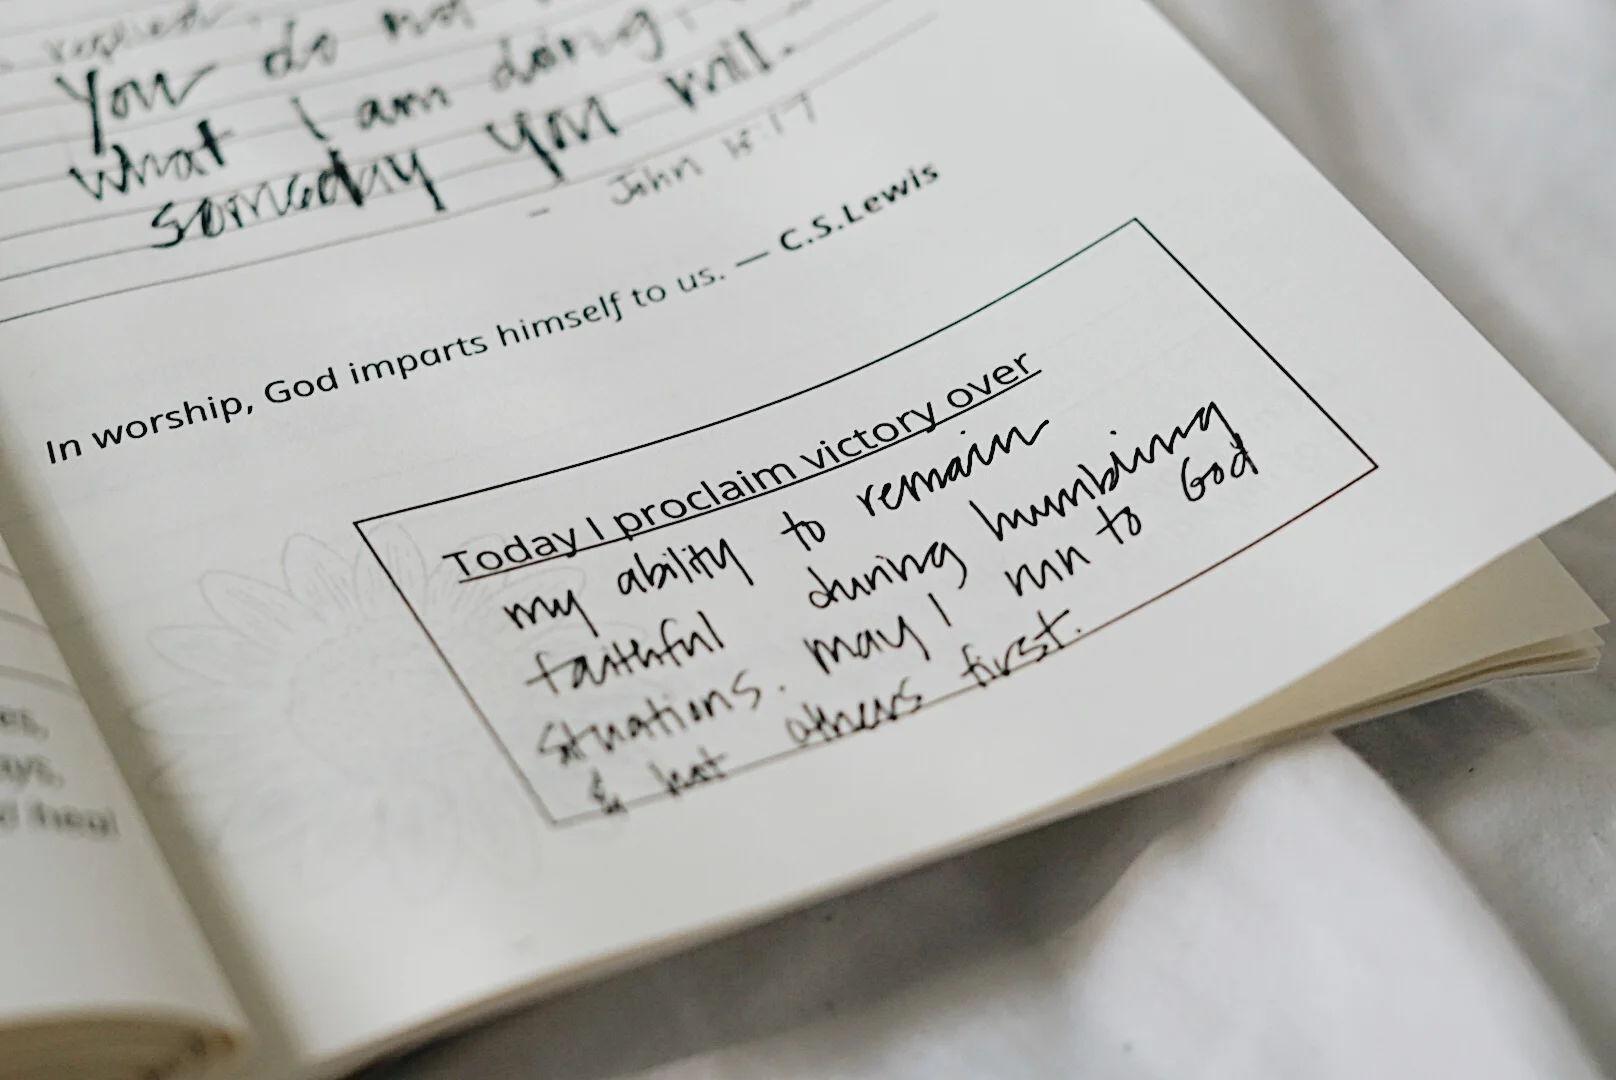 replied,
You do not
what I am doing,
someday you will.
- John 13:17
In worship, God imparts himself to us. — C.S.Lewis
Today I proclaim victory over
my ability to remain
faithful during humbling
situations. may I run to God
& not others first.
heal